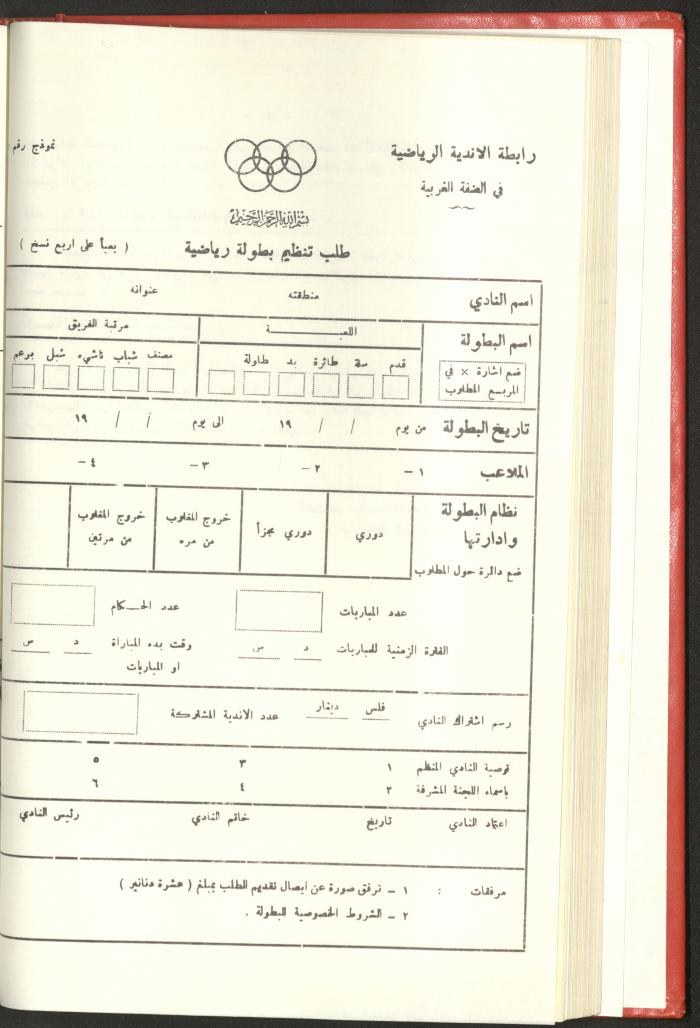 رابطة الاندية الرياضية
في الضفة الغربية
نموذج رقم
بسم الله الرحمن الرحيم
طلب تنظيم بطولة رياضية
( يعبأ على اربع نسخ )
اسم النادي منطقته عنوانه
اسم البطولة اللعبـــــــــــة مرتبة الفريق
ضع اشارة × في
المربع المطلوب
قدم سلة طائرة يد طاولة مصنف شباب ناشيء شبل برعم
تاريخ البطولة من يوم / / ١٩ الى يوم / / ١٩
الملاعب ١ – ٢ – ٣ – ٤ –
نظام البطولة
وادارتها
ضع دائرة حول المطلوب
دوري دوري مجزأ
خروج المغلوب
من مره
خروج المغلوب
من مرتين
عدد المباريات عدد الحـــكام
الفترة الزمنية للمباريات د س وقت بدء المباراة د س
او المباريات
رسم اشتراك النادي فلس دينار عدد الاندية المشتركة
توصية النادي المنظم ١ ٣ ٥
باسماء اللجنة المشرفة ٢ ٤ ٦
اعتماد النادي تاريخ خاتم النادي رئيس النادي
مرفقات : ١ – ترفق صورة عن ايصال تقديم الطلب بمبلغ ( عشرة دنانير )
٢ – الشروط الخصوصية للبطولة .